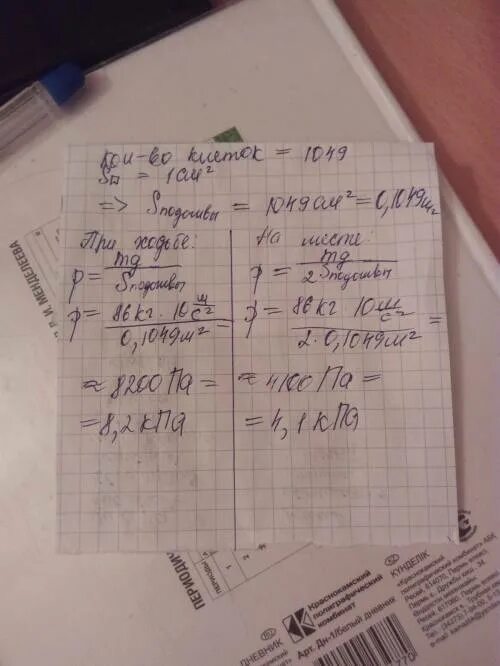 кол-во клеток = 1049
S□ = 1 см²
=> Sподошвы = 1049 см² = 0,1049 м²
При ходьбе:
p = mg / Sподошвы
p = 86 кг · 10 м/с² / 0,1049 м² =
≈ 8200 Па =
= 8,2 кПа
На месте:
p = mg / 2 Sподошвы
p = 86 кг · 10 м/с² / 2 · 0,1049 м² =
≈ 4100 Па =
= 4,1 кПа
И. МЕНДЕЛЕЕВА
ПЕРИОДИЧ
ПЕРИОДЫ
1
2
Краснокамский
полиграфический
комбинат
ДНЕВНИК
Арт. Дн-1/белый дневник
KZ
КҮНДЕЛІК
RU